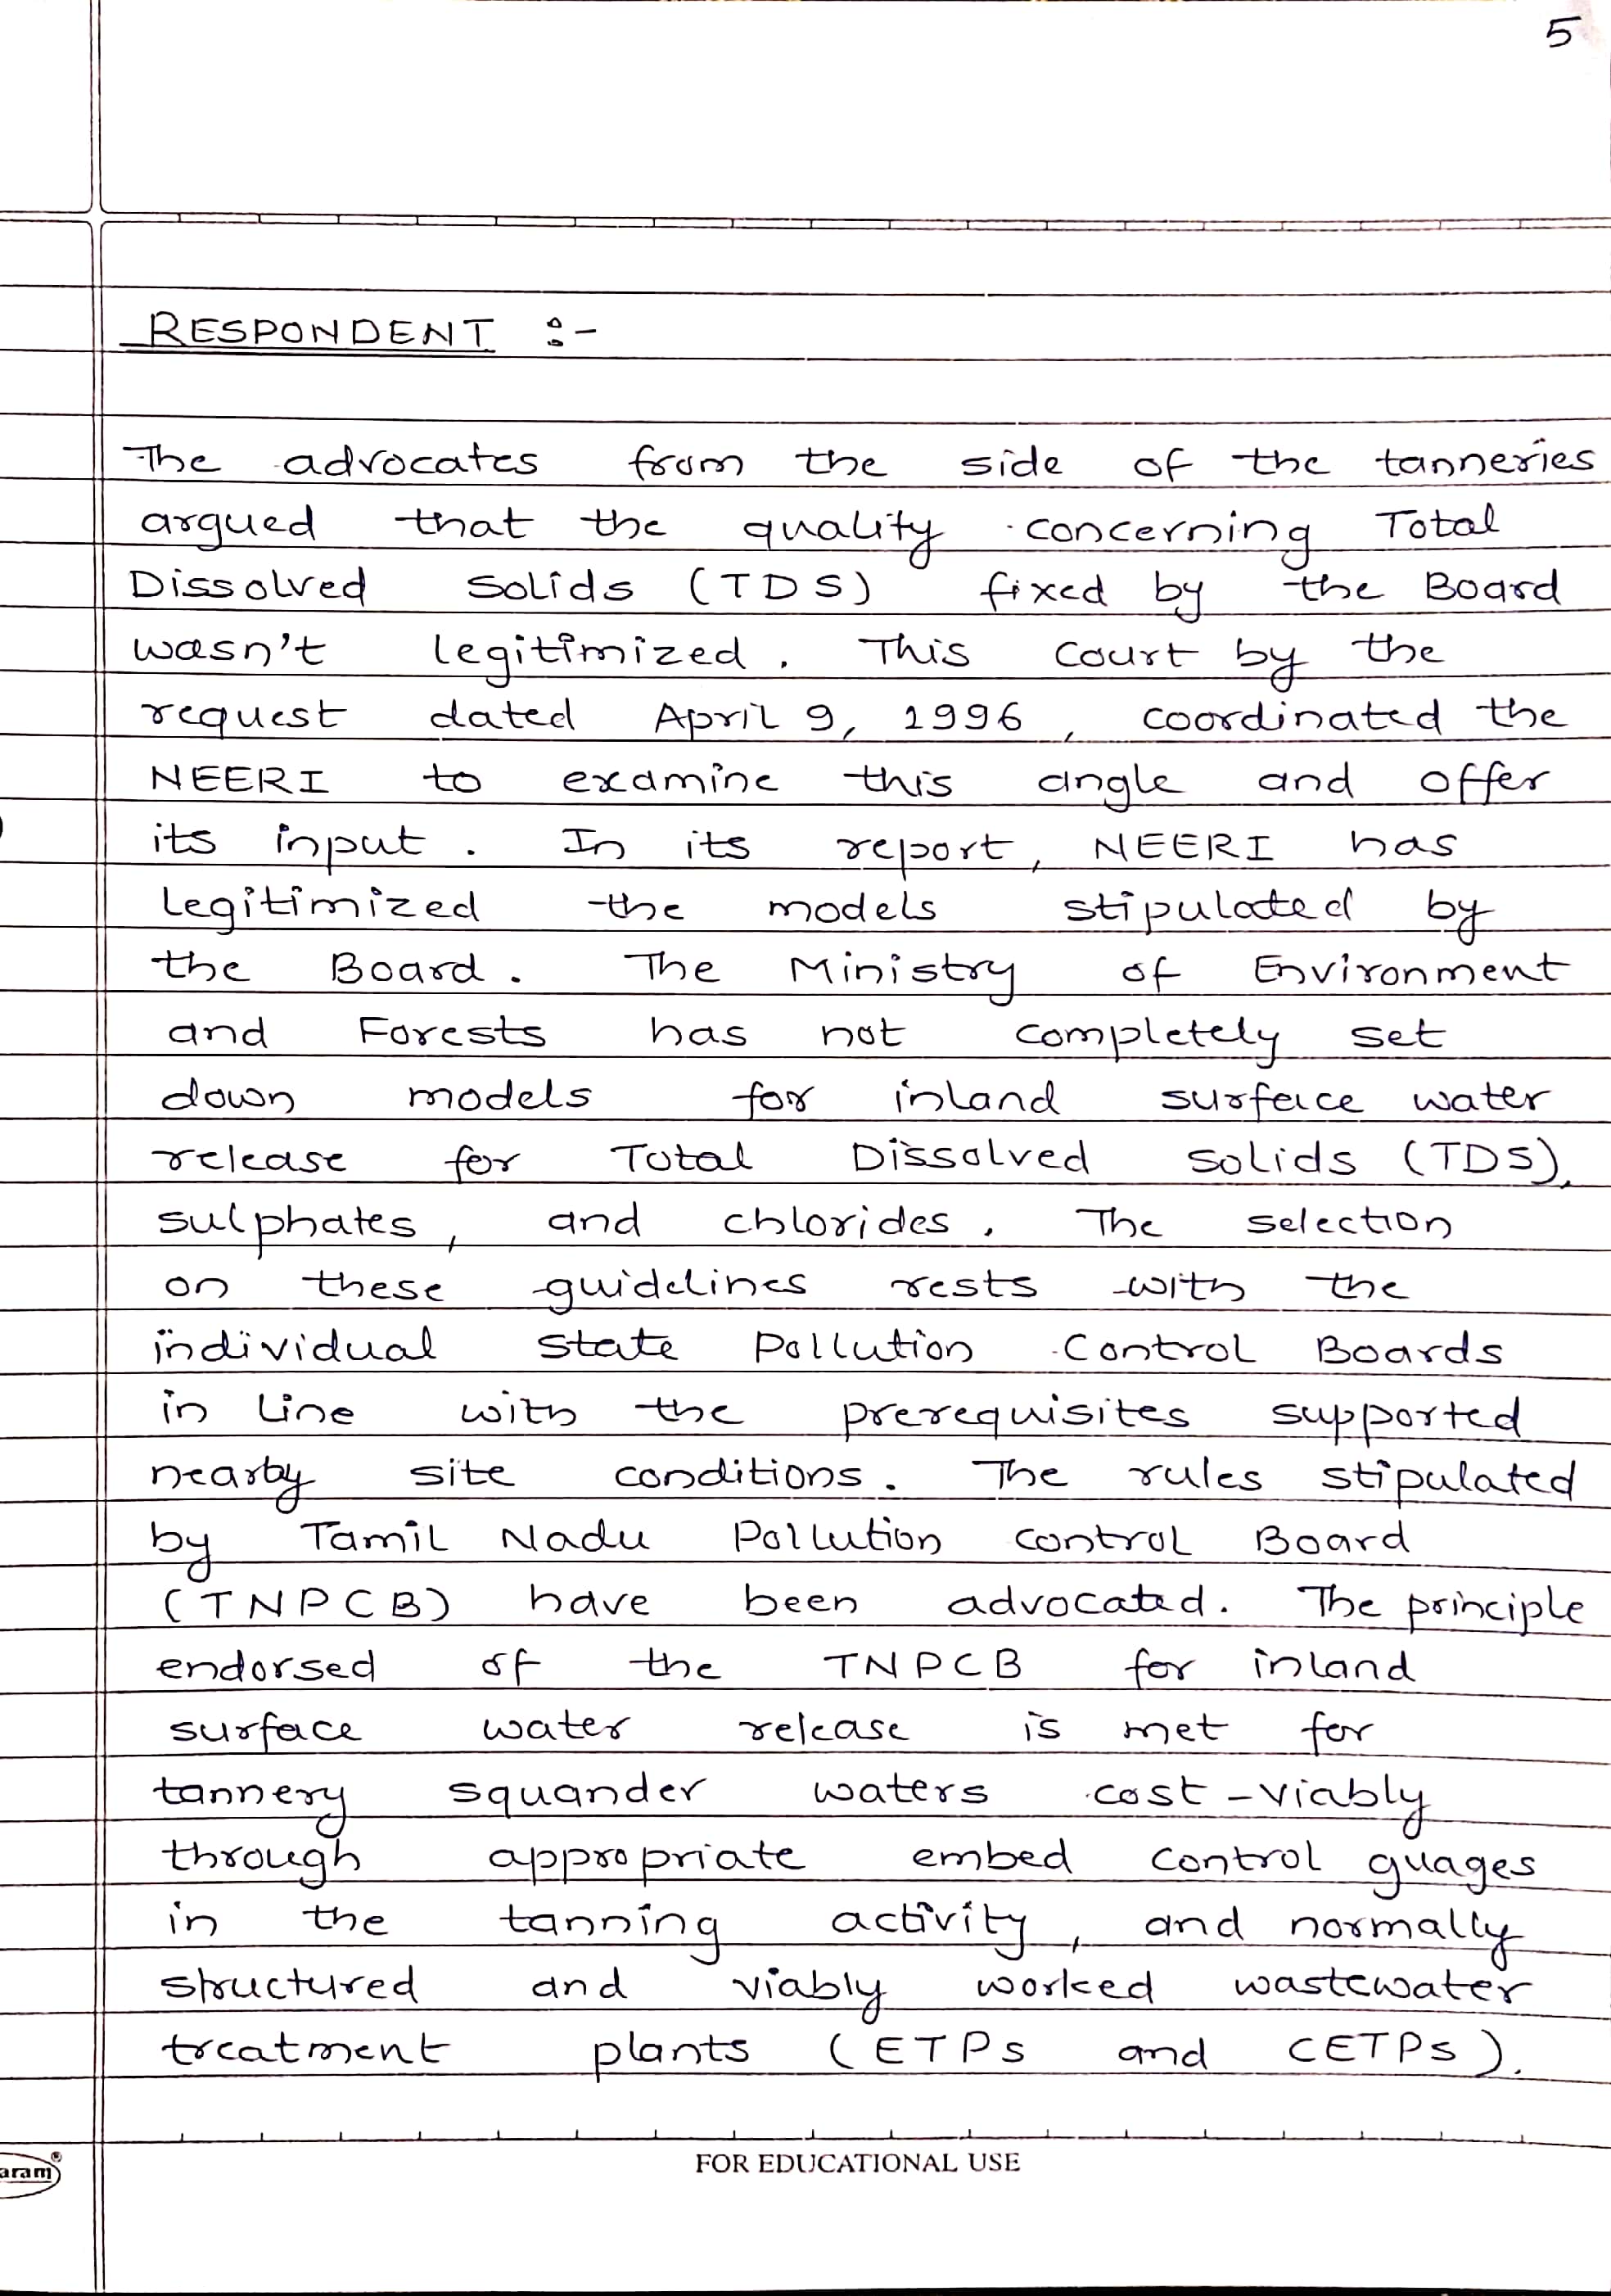 5
RESPONDENT :-
The advocates from the side of the tanneries
argued that the quality concerning Total
Dissolved Solids (TDS) fixed by the Board
wasn't legitimized. This court by the
request dated April 9, 1996, coordinated the
NEERI to examine this angle and offer
its input. In its report, NEERI has
legitimized the models stipulated by
the Board. The Ministry of Environment
and Forests has not completely set
down models for inland surface water
release for Total Dissolved Solids (TDS),
sulphates, and chlorides. The selection
on these guidelines rests with the
individual State Pollution Control Boards
in line with the prerequisites supported
nearby site conditions. The rules stipulated
by Tamil Nadu Pollution Control Board
(TNPCB) have been advocated. The principle
endorsed of the TNPCB for inland
surface water release is met for
tannery squander waters cost-viably
through appropriate embed control guages
in the tanning activity, and normally
structured and viably worked wastewater
treatment plants (ETPs and CETPs).
aram®
FOR EDUCATIONAL USE